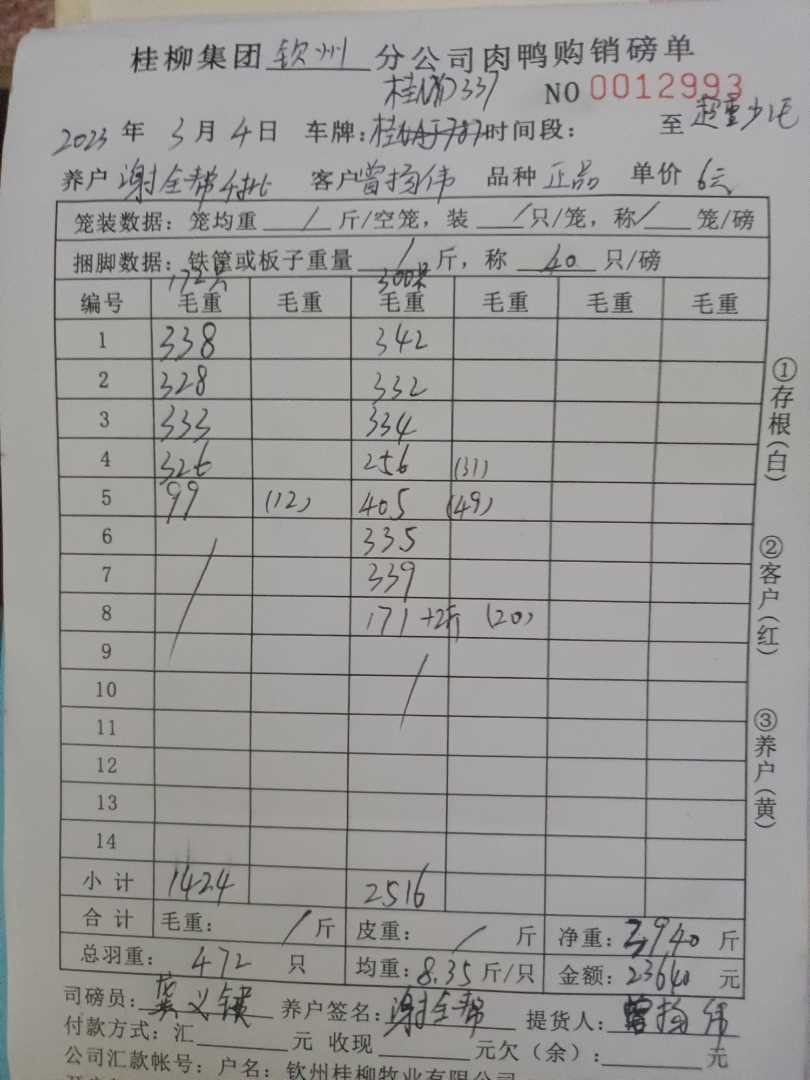 桂柳集团 钦州 分公司肉鸭购销磅单
337 NO 0012993
2023 年 3 月 4 日 车牌: 时间段: 至 超重少毛
养户 谢全帮 客户 曾扬伟 品种 正品 单价 6元
笼装数据: 笼均重 / 斤/空笼, 装 / 只/笼, 称 / 笼/磅
捆脚数据: 铁筐或板子重量 / 斤, 称 40 只/磅
172只 300只
编号 毛重 毛重 毛重 毛重 毛重 毛重
1 338 342
2 328 332
3 333 334
4 326 256 (31)
5 99 (12) 405 (49)
6 335
7 339
8 171+2斤 (20)
9
10
11
12
13
14
小计 1424 2516
合计 毛重: / 斤 皮重: / 斤 净重: 3940 斤
总羽重: 472 只 均重: 8.35 斤/只 金额: 23640 元
司磅员: 养户签名: 谢全帮 提货人: 曾扬伟
付款方式: 汇 元 收现 元欠(余): 元
公司汇款帐号: 户名: 钦州桂柳牧业有限公司
①存根(白)
②客户(红)
③养户(黄)